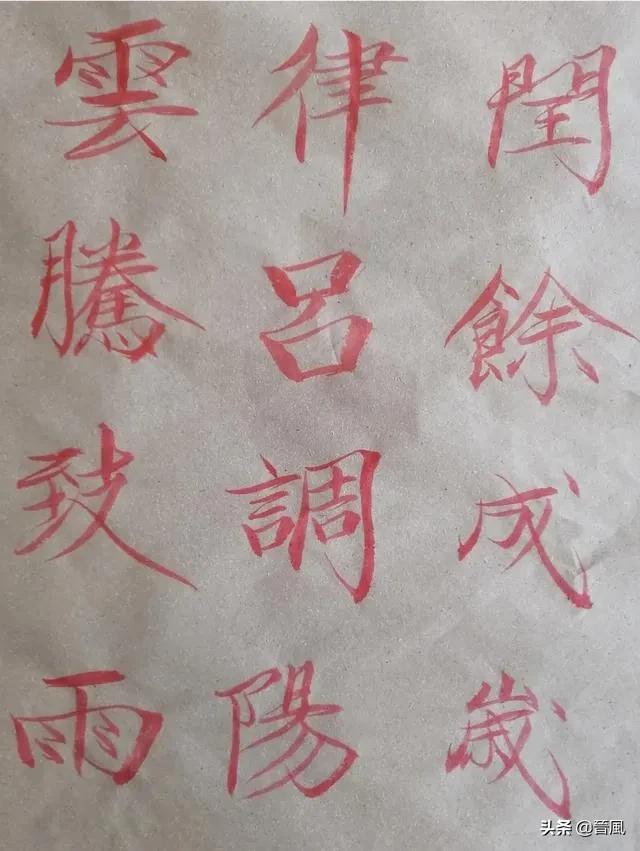 閏餘成歲
律呂調陽
雲騰致雨
头条 @晉風